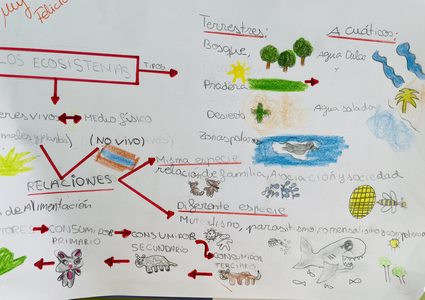 Muy
Felici
LOS ECOSISTEMAS
TIPOS
Terrestres:
Bosque,
Pradera
Desierto
Zonas polar
Acuáticos:
Agua Dulce
Agua salada
eres vivos ↔ Medio físico
males y plantas) (NO VIVO)
RELACIONES
Misma especie
relación de familia, Asociación y sociedad
Diferente especie
Mutualismo, parasitismo, comensalismo y competencia
de Alimentación
TORES → CONSUMIDOR PRIMARIO → CONSUMIDOR SECUNDARIO
CONSUMIDOR TERCIARIO